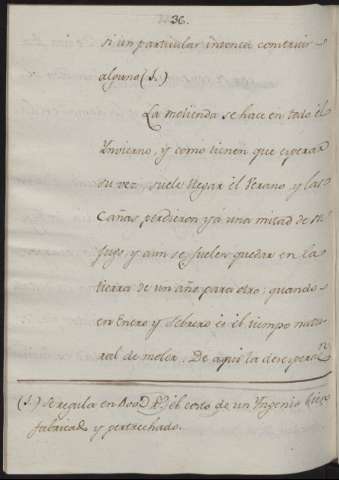 36.
si un particular intenta construir
alguno (1.)
La molienda se hace en todo el
Invierno, y como tienen que esperar
su vez, suele llegar el Verano y las
Cañas perdieron yá una mitad de su
jugo y aun se suelen quedar en la
tierra de un año para otro; quando
en Enero y Febrero es el tiempo natu
ral de moler. De aqui la desespera
(1.) Se regula en el costo de un Yngenio bien
fabricado y pertrechado.